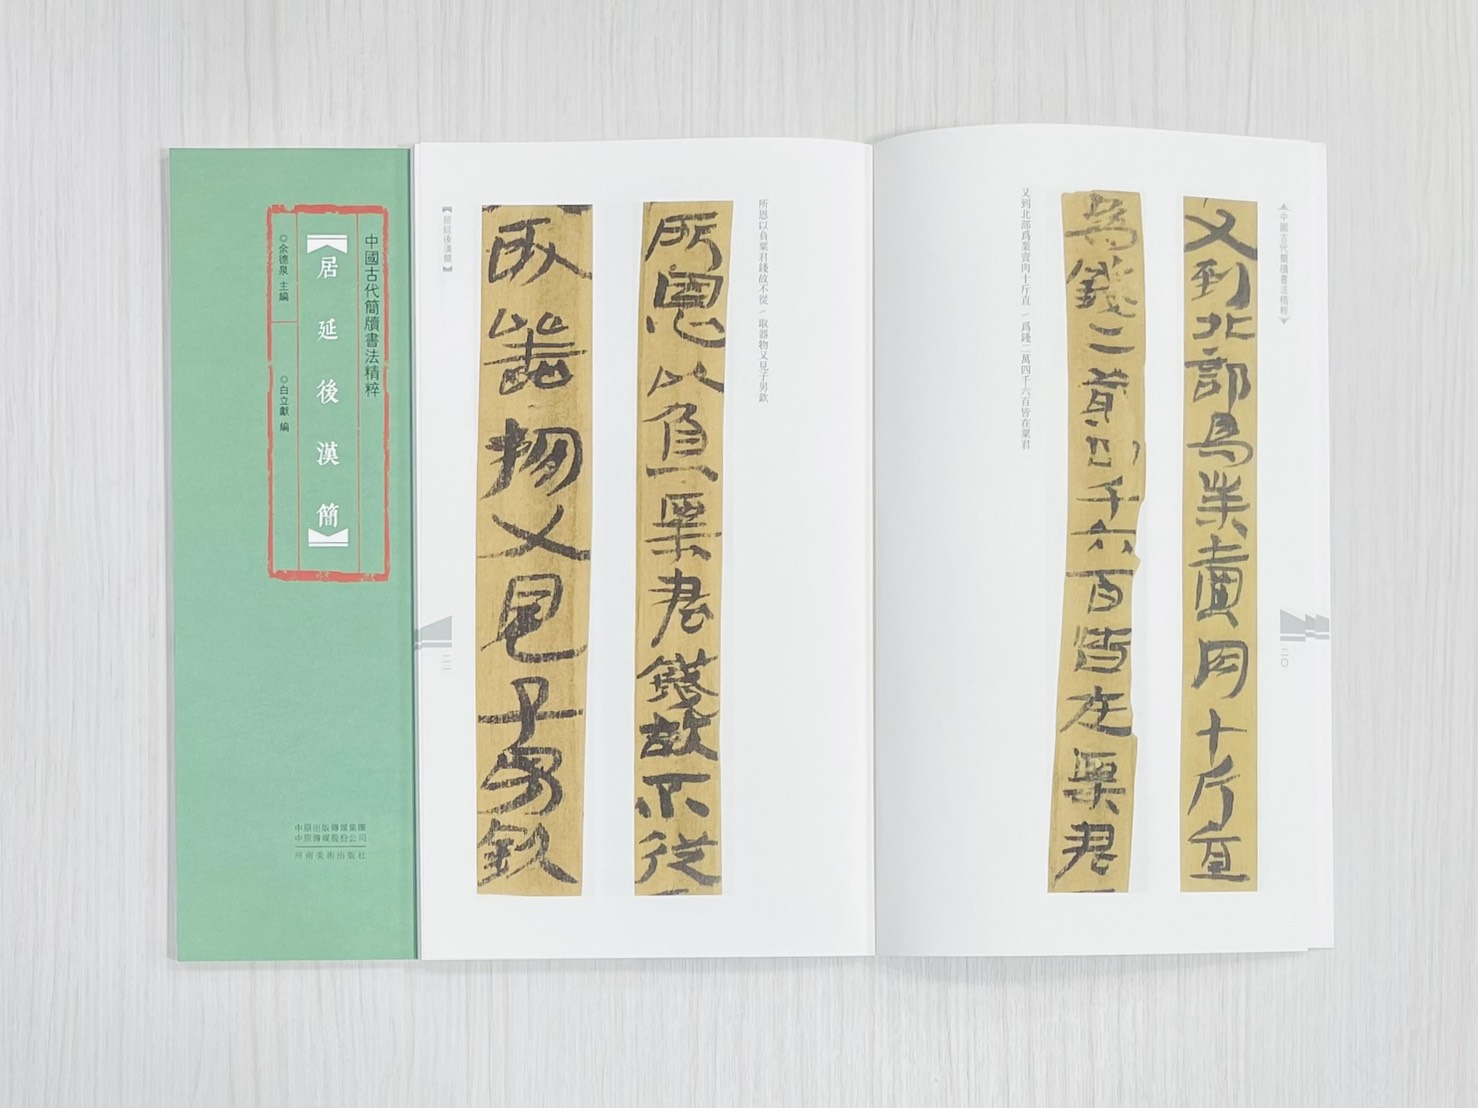 中國古代簡牘書法精粹
【居延後漢簡】
◎余德泉 主編
◎白立獻 編
中原出版傳媒集團
中原傳媒股份公司
河南美術出版社
中國古代簡牘書法精粹
二〇
又到北部爲業賣肉十斤直
爲錢二萬四千六百皆在粟君
又到北部爲業賣肉十斤直/爲錢二萬四千六百皆在粟君
所恩以負粟君錢故不從/取器物又見子男欽
所恩以負粟君錢故不從
取器物又見子男欽
【居延後漢簡】
二一